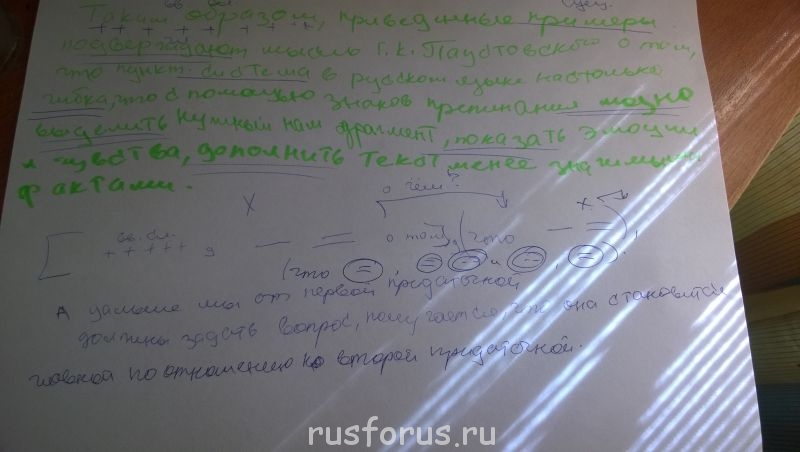 вв. сл.
Таким образом, приведенные примеры
подтверждают мысль Г.К. Паустовского о том,
что пункт. система в русском языке настолько
гибка, что с помощью знаков препинания можно
выделить нужный нам фрагмент, показать эмоции
и чувства, дополнить текст менее значимыми
фактами.
о чём?
х х
[ вв. сл. , — = о том], (что — = ,
(что = , = и , = ).
А дальше мы от первой придаточной
должны задать вопрос, получается, что она становится
главной по отношению ко второй придаточной.
rusforus.ru